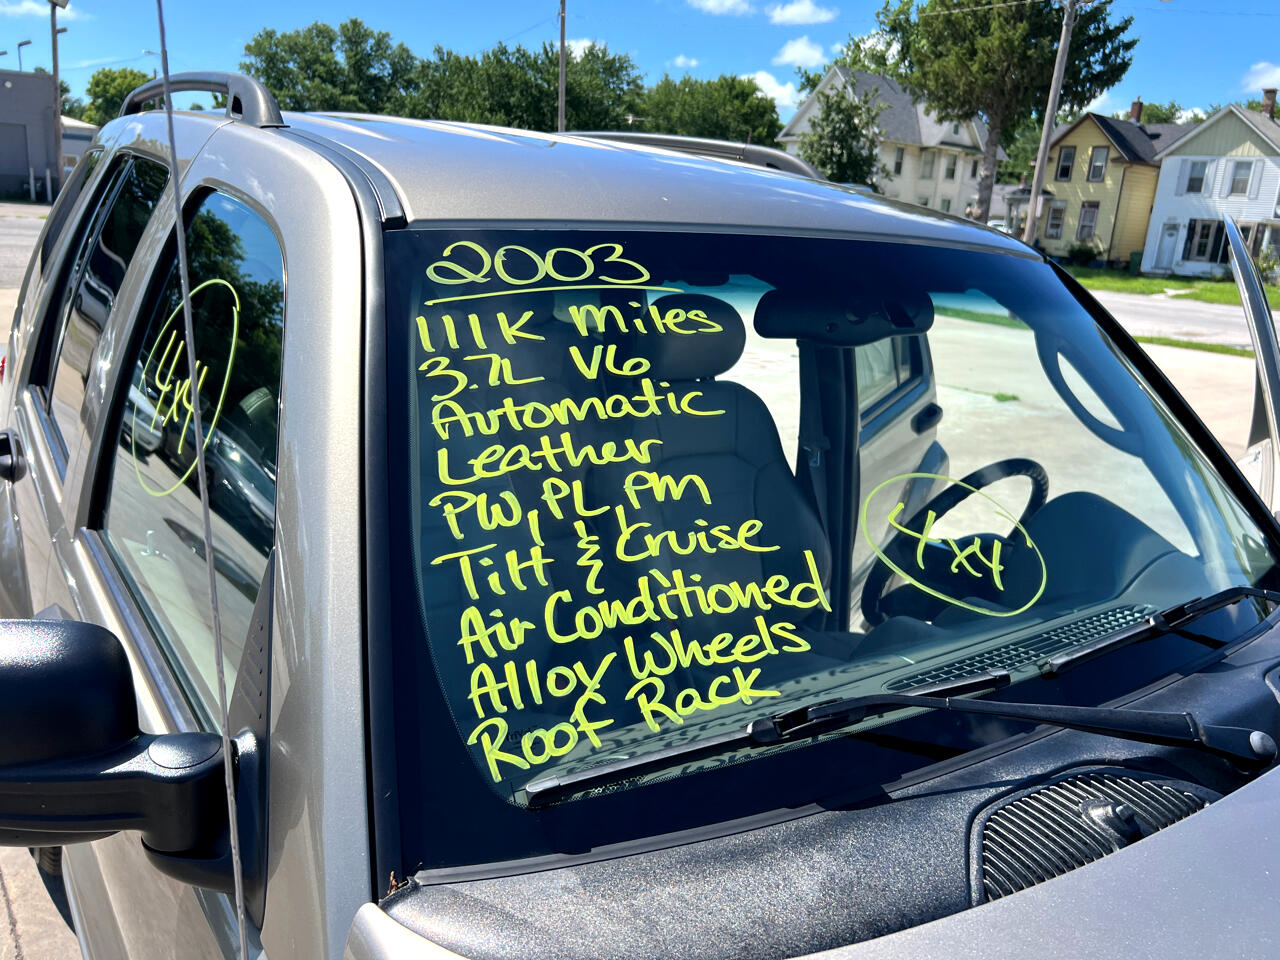 2003
111K miles
3.7L V6
Automatic
Leather
PW, PL, PM
Tilt & Cruise
Air Conditioned
Alloy Wheels
Roof Rack
4x4
4x4